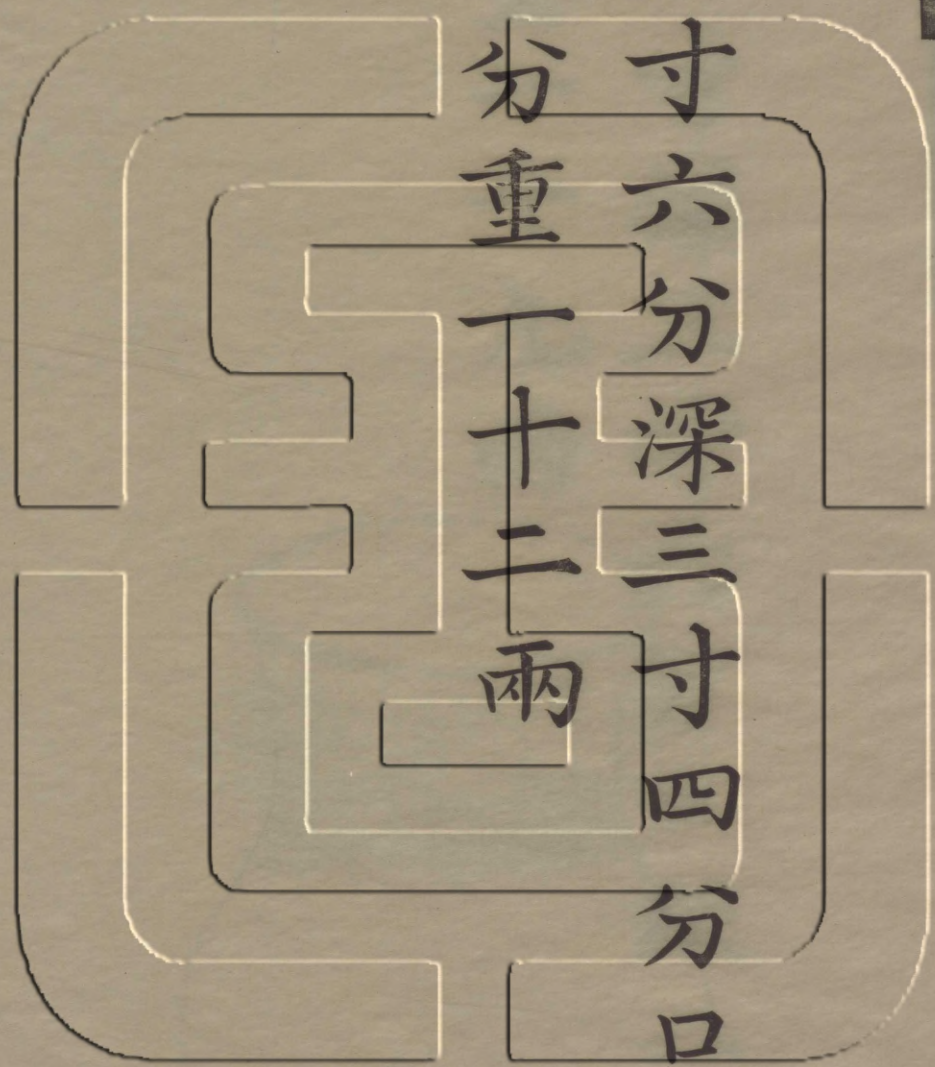 寸六分深三寸四分口
分重一十二兩